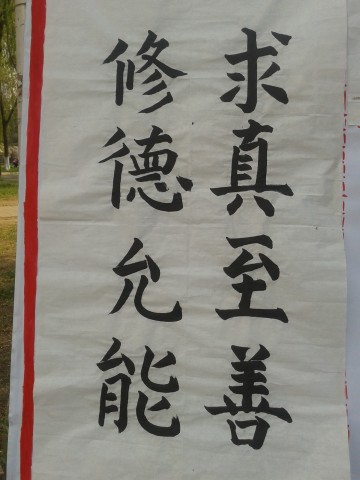 求真至善
修德允能